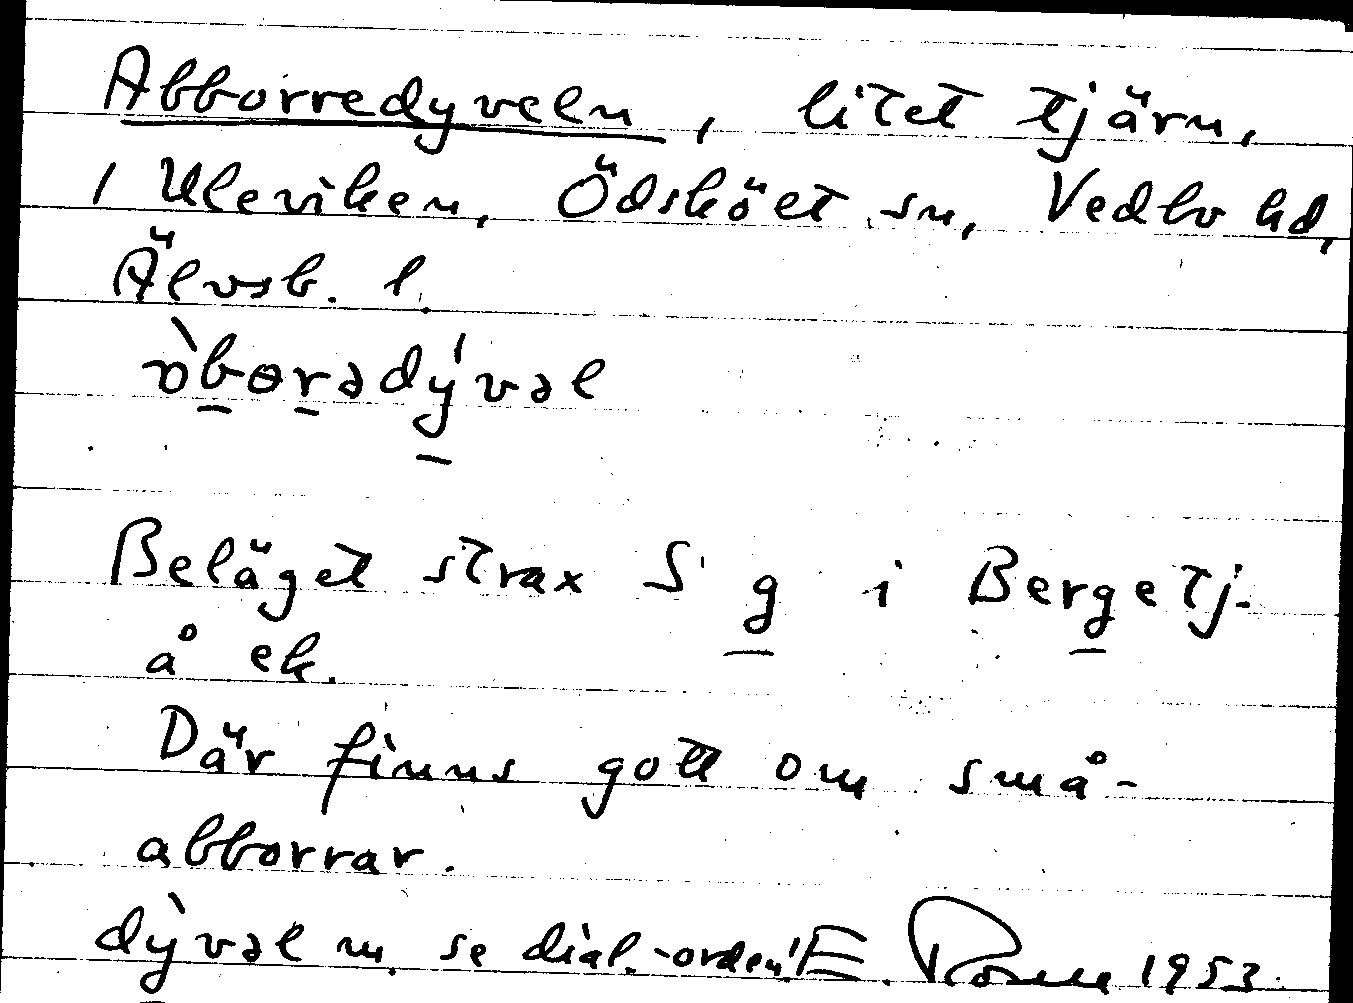 Abborredyveln, litet tjärn,
i Uleviken, Ödsköet sn, Vedbo hd,
Älvsb. l.
òborədývəl
Beläget strax S g i Bergetj-
å ek.
Där finns gott om små-
abborrar.
dỳvəl m. se dial.-orden! E. 1953.